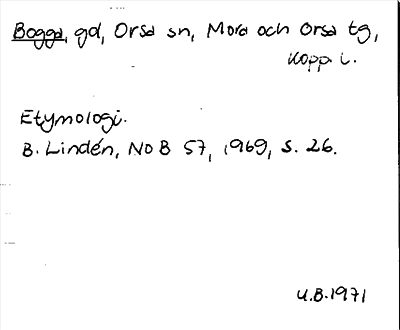 Bogga, gd, Orsa sn, Mora och Orsa tg,
Kopp. l.
Etymologi.
B. Lindén, NoB 57, 1969, s. 26.
U.B. 1971